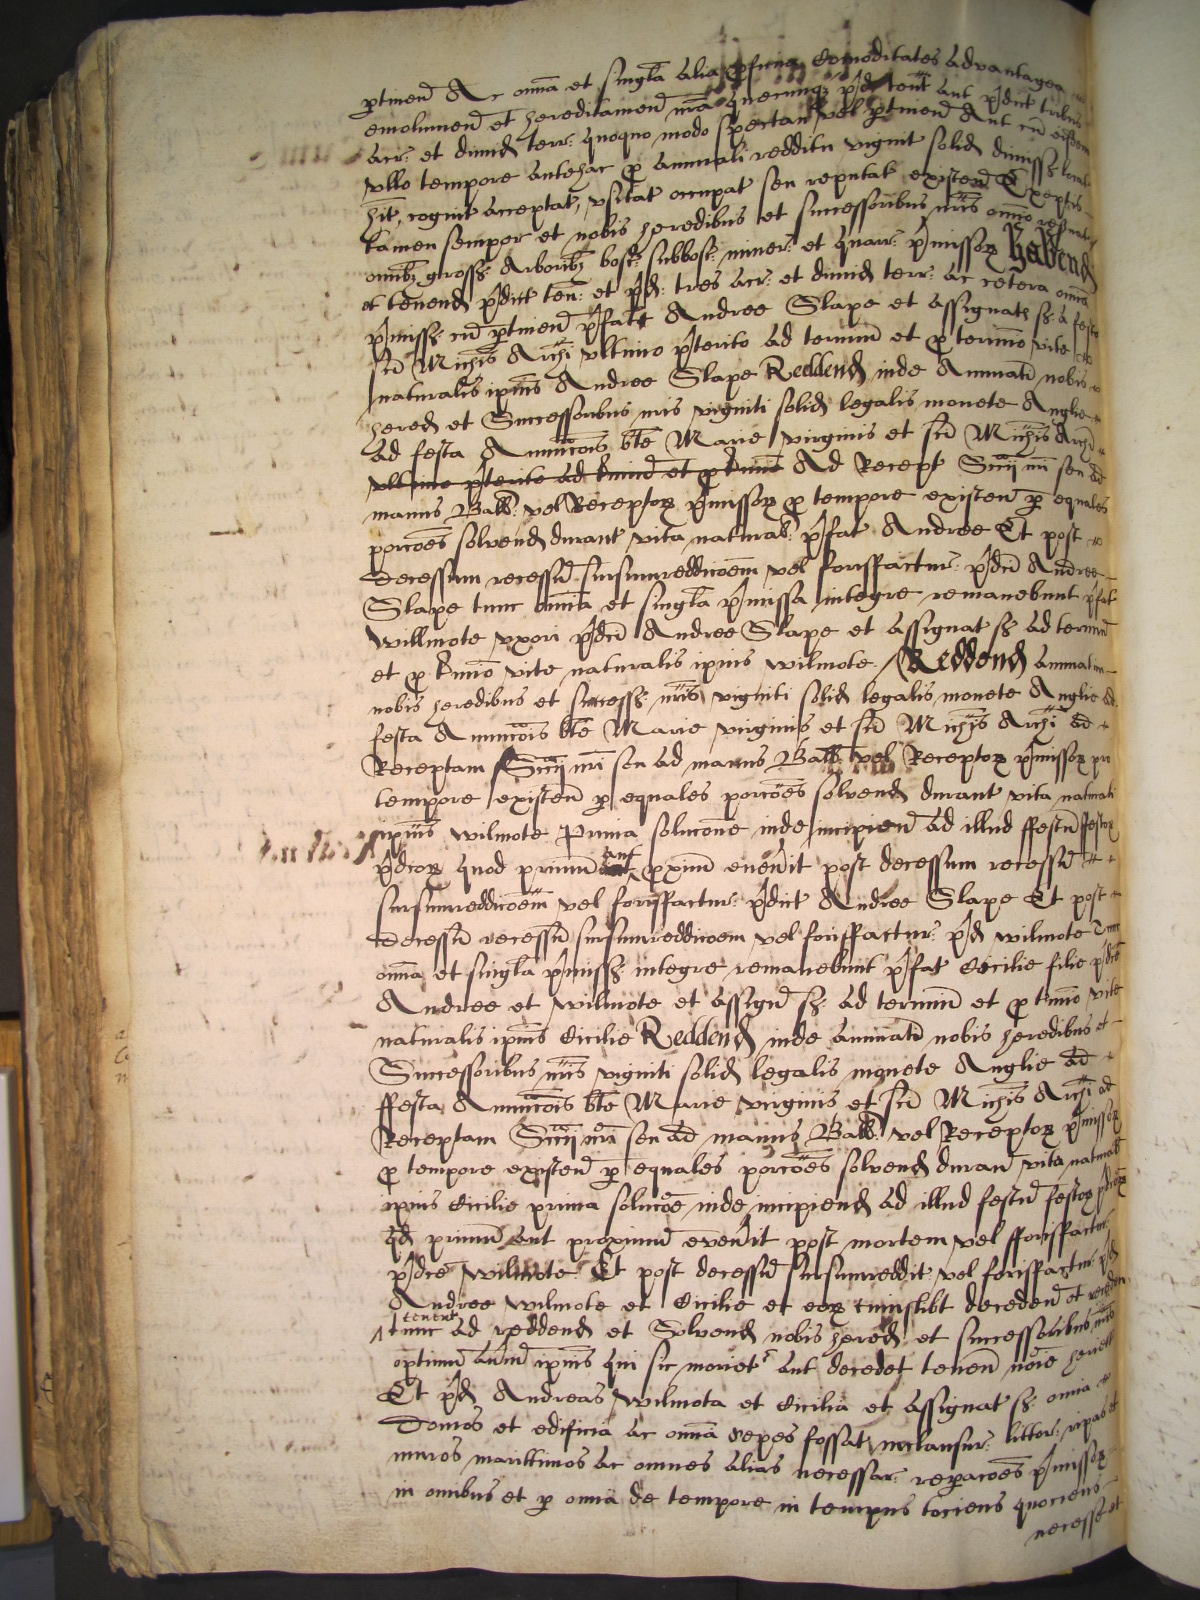 ptinen Ac omia et singla alia proficua Comoditates advantagea
emolumen et hereditamen nra quecunqz pd ten aut pdict tribus
acr: et dimid terr: quoquo modo spectan vel ptinen Aut cu eisdem
ullo tempore antehac p annuali redditu viginti solid dimiss locat
hit, cognit acceptat, usitat occupat seu reputat existen Exceptis
tamen semper et nobis heredibus et successoribus nris omnino reservat
omibz gross: Arboribz bosc: subbosc: miner: et quarr: pmissor Habend
et tenend pdict ten: et pd: tres acr: et dimid terr: ac cetera omia
pmiss: cu ptinen pfat Andree Slape et assignat s: a festo
sci Michis Archi ultimo pterito ad terminu et p termino vite
naturalis ipius Andree Slape Reddend inde Annuati nobis
hered et Successoribus nris viginti solid legalis monete Anglie
ad festa Annuncois bte Marie virginis et sci Michis Archi
ultimo pterito ad tminu et p tmino Ad Recept Sccij nri seu ad
manus Ball: vel Receptor pmissor p tempore existen p equales
porcoes solvend durant vita natural: pfat Andree Et post
decessum recessu sursumreddicoem vel forisfactur: pdci Andree
Slape tunc omia et singla pmissa integre remanebunt pfat
Willmote uxori pdci Andree Slape et assignat s: ad terminu
et p tmino vite naturalis ipius Wilmote. Reddend annuatim
nobis heredibus et success: nris viginti solid legalis monete Anglie ad
festa Annuncois bte Marie virginis et sci Michis Archi ad
Receptam Sccij nri seu ad manus Ball: vel Receptor pmissor pro
tempore existen p equales porcoes solvend durant vita naturali
ipius Wilmote Prima solucone inde incipien ad illud ffestu ffestor
pdcor quod primu aut pximu evenit post decessum recessu
sursumreddicoem vel forisfactur: pdict Andree Slape Et post
decessu recessu sursumreddicoem vel forisfactur: pd Wilmote Tunc
omia et singla pmiss: integre remanebunt pfat Cicilie filie pdce
Andree et Wilmote et assign s: ad terminu et p tmino vite
naturalis ipius Cicilie Reddend inde annuati nobis heredibus et
Successoribus nris viginti solid legalis monete Anglie ad
ffesta Annuncois bte Marie virginis et sci Michis Archi ad
Receptam Sccij nri seu ad manus Ball: vel Receptor pmissor
p tempore existen p equales porcoes solvend duran vita natural
ipius Cicilie prima solucoe inde incipiend ad illud festu festor pdcor
qd primu aut proximu evenit post mortem vel fforisfactur
pdce Wilmote Et post decessu sursumreddit vel forisfactur: pd
Andree Wilmote et Cicilie et eor cuiuslibt deceden et receden
tenent
tunc ad reddend et Solvend nobis hered et successoribus nris
optimu aiu ipius qui sic moriet aut decedet tenen noie heriett
Et pd Andreas Wilmota et Cicilia et assignat s: omia
Domos et edificia ac omia sepes fossat inclausur: littor: ripas et
muros marittimos ac omnes alias necessar: reparacoes pmissor
in omibus et p omia de tempore in tempus tociens quociens
necesse